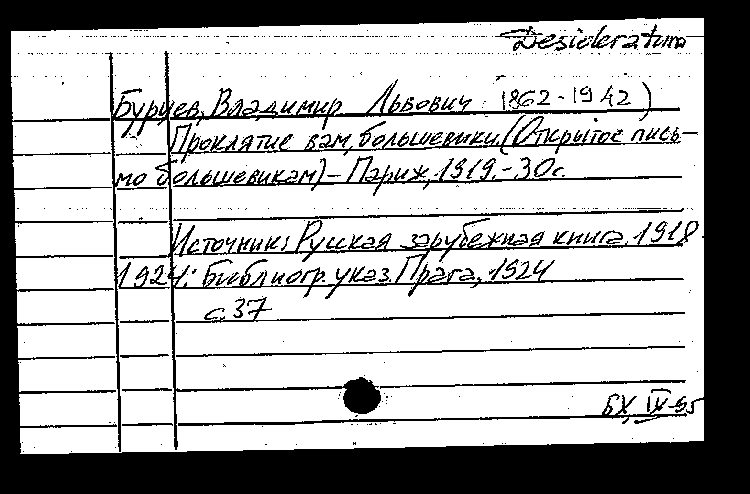 Desideratum
Бурцев, Владимир Львович (1862-1942)
Проклятие вам, большевики. (Открытое пись-
мо большевикам) - Париж, 1919. - 30 с.
Источник: Русская зарубежная книга, 1918-
1924: Библиогр. указ. Прага, 1924
с. 37
БХ, IX-95